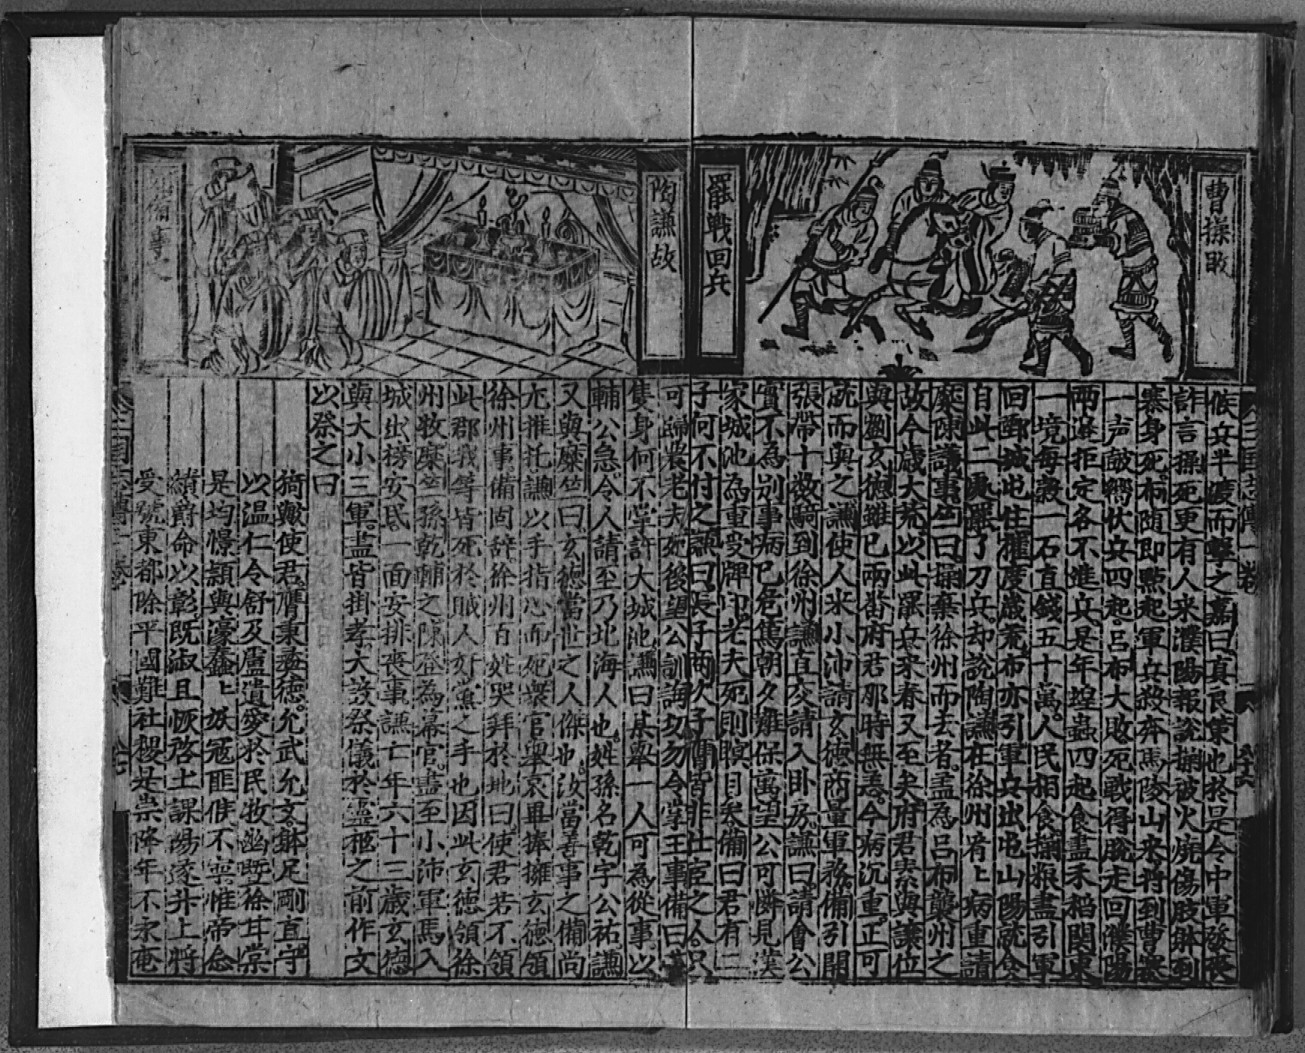 曹操敗
罷戰回兵
候兵半渡而擊之嘉曰真良策也於是令中軍發喪
詐言操死更有人來濮陽報說操被火燒傷肢體到
寨身死布隨即點起軍兵殺奔馬陵山來將到曹寨
一声鼓響伏兵四起呂布大敗死戰得脫走回濮陽
兩邊拒定各不進兵是年蝗蟲四起食盡禾稻関東
一境每穀一石直錢五十萬人民相食操粮盡引軍
回鄄城也住權度歲荒布亦引軍兵出屯山陽就食
自此二處罷了刀兵却說陶謙在徐州府上病重請
糜陳議事竺曰操棄徐州而去者盖為呂布襲州之
故今歲大荒以此罷兵來春又至矣府君素與讓位
與劉玄德雖已兩畨府君那時無恙今病沉重正可
就而與之謙使人來小沛請玄德商量軍務備引関
張帶十數騎到徐州謙直交請入卧房謙曰請會公
實不為別事病已危篤朝夕難保萬望公可憐見漢
家城池為重受牌印老夫死則瞑目矣備曰君有二
子何不付之謙曰長子商次子應皆非仕宦之人只
可歸農老夫死後望公訓誨切勿令掌王事備曰某
隻身何不掌許大城池謙曰某舉一人可為從事以
陶謙故
劉備事之
輔公急令人請至乃北海人也姓孫名乾字公祐謙
又與糜竺曰玄德當世之人傑也汝當善事之備尚
尤推托謙以手指心而死衆官舉哀畢捧擁玄德領
徐州事備固辞徐州百姓哭拜於地曰使君若不領
此郡我等皆死於賊人奸黨之手也因此玄德領徐
州牧糜竺孫乾輔之陳登為幕官盡至小沛軍馬入
城出榜安民一面安排喪事謙亡年六十三歲玄德
與大小三軍盡皆掛孝大設祭儀於靈柩之前作文
以祭之曰
猗歟使君膺秉懿德允武允文體足剛直守
以温仁令舒及廬遺愛於民牧幽曁徐甘棠
是均憬憬頴與濠蠢蠢妖冦匪使不寧惟帝念
績爵命以彰既淑且恢啓土溧陽遂升上將
受號東都除平國難社稷是崇降年不永奄